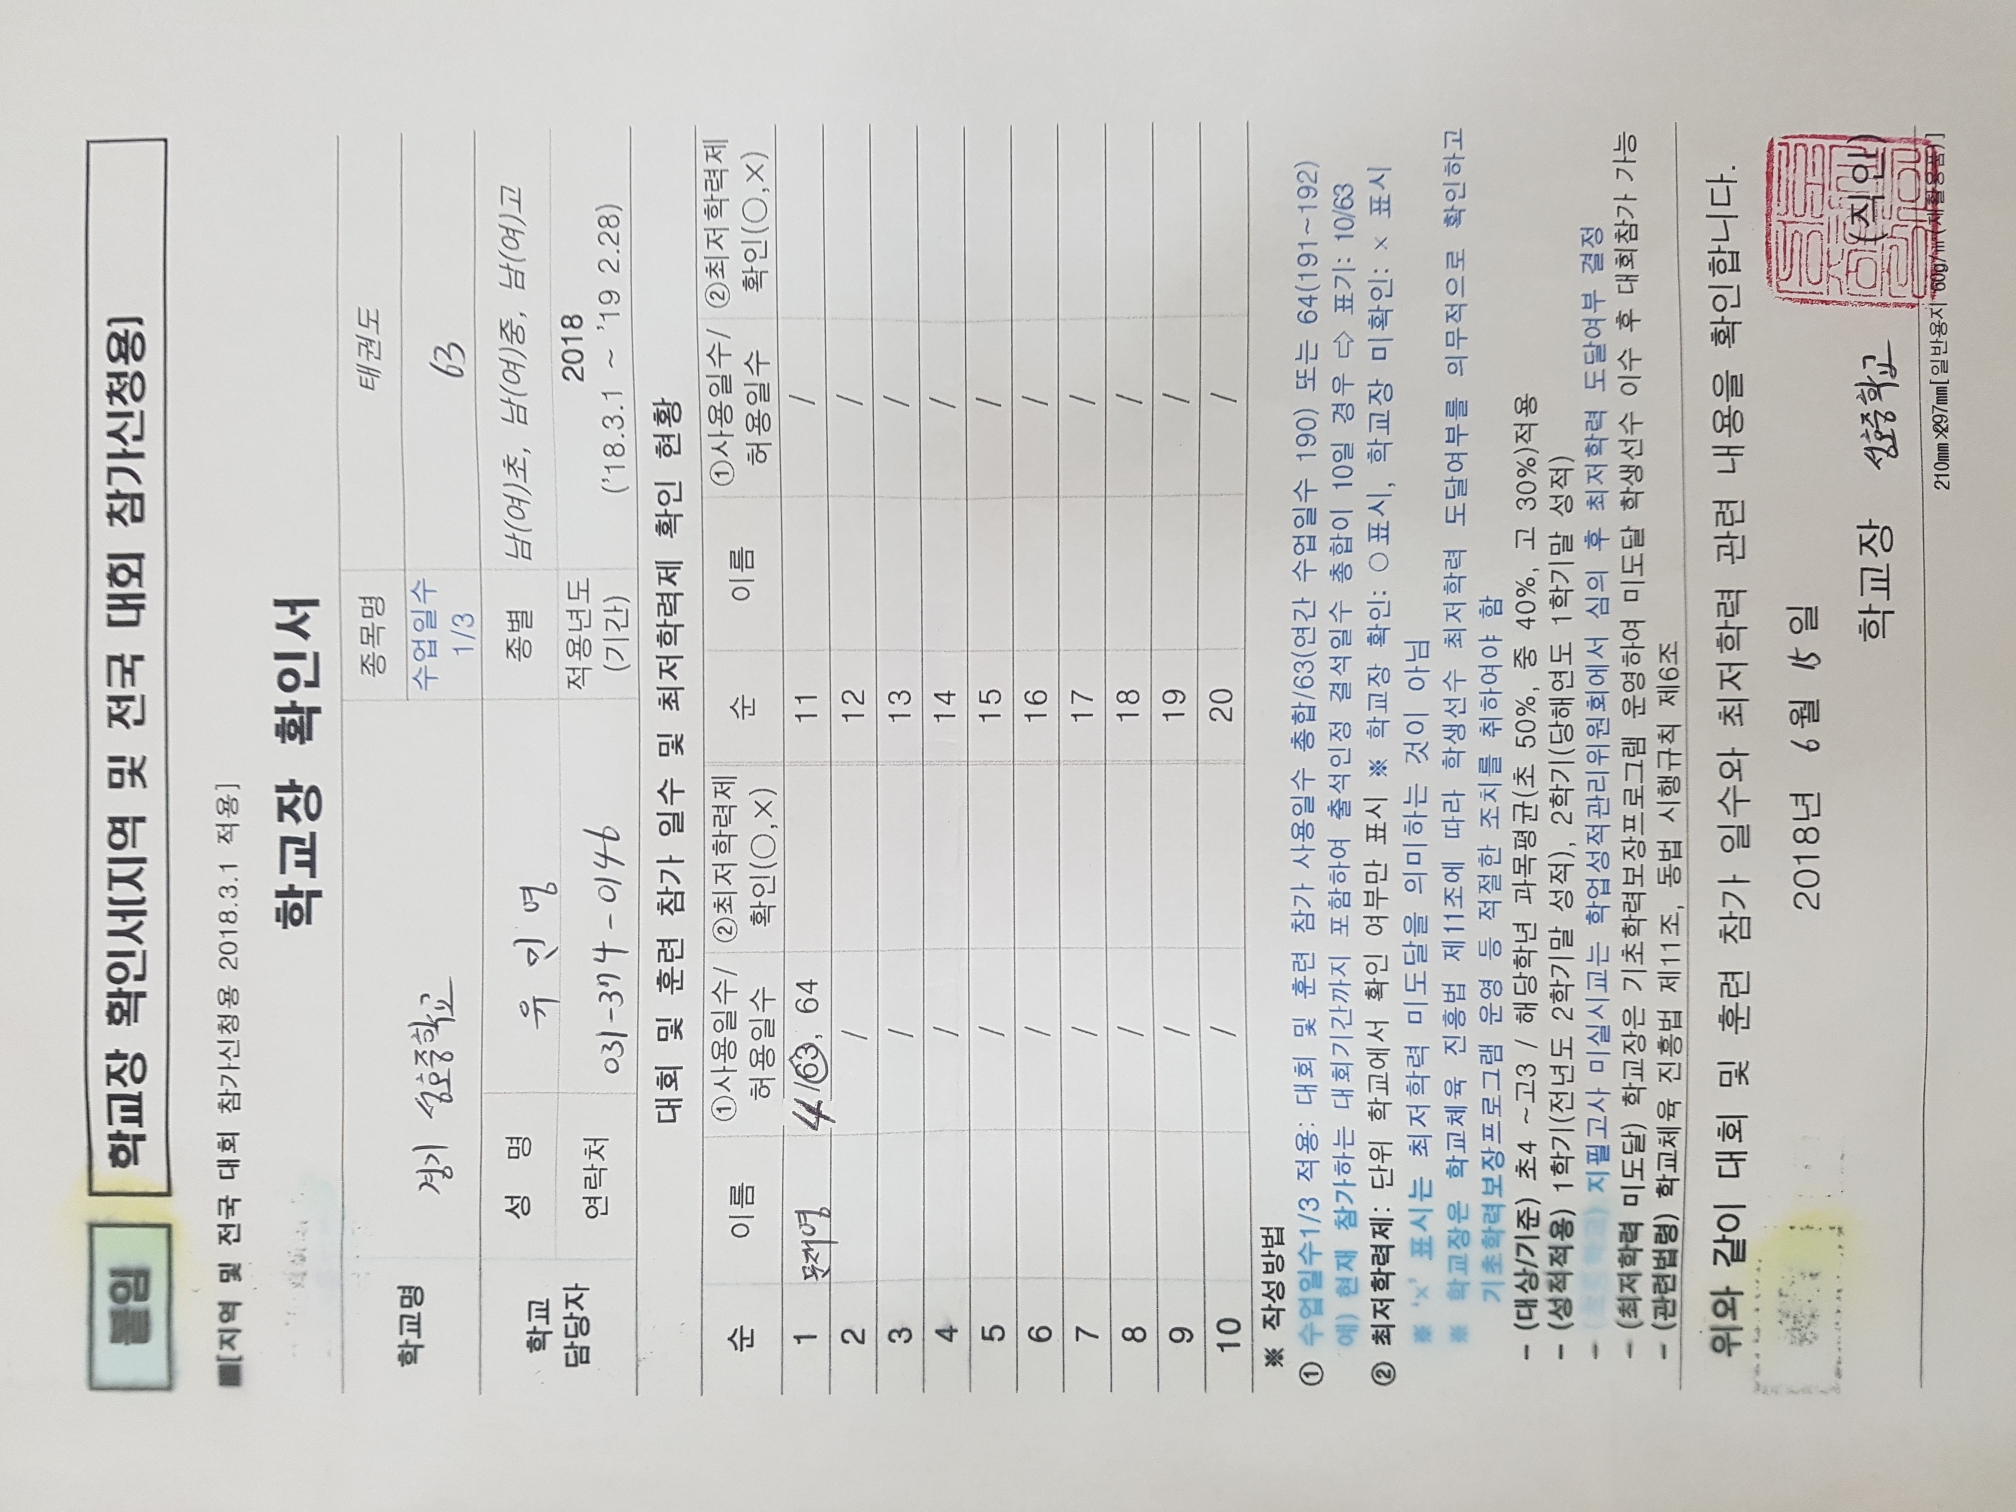 붙임
학교장 확인서(지역 및 전국 대회 참가신청용)
■[지역 및 전국 대회 참가신청용 2018.3.1 적용]
학교장 확인서
학교명 경기 성호중학교 종목명 태권도
수업일수 1/3 63
학교 담당자 성 명 유 민 명 종별 남(여)초, 남(여)중, 남(여)고
연락처 031-374-0146 적용년도 (기간) 2018 ('18.3.1 ~ '19 2.28)
대회 및 훈련 참가 일수 및 최저학력제 확인 현황
순 이름 ①사용일수/허용일수 ②최저학력제 확인(○,×) 순 이름 ①사용일수/허용일수 ②최저학력제 확인(○,×)
1 문재영 4/63, 64 11 /
2 / 12 /
3 / 13 /
4 / 14 /
5 / 15 /
6 / 16 /
7 / 17 /
8 / 18 /
9 / 19 /
10 / 20 /
※ 작성방법
① 수업일수1/3 적용: 대회 및 훈련 참가 사용일수 총합/63(연간 수업일수 190) 또는 64(191~192)
예) 현재 참가하는 대회기간까지 포함하여 출석인정 결석일수 총합이 10일 경우 ⇨ 표기: 10/63
② 최저학력제: 단위 학교에서 확인 여부만 표시 ※ 학교장 확인: ○표시, 학교장 미확인: × 표시
※ '×' 표시는 최저학력 미도달을 의미하는 것이 아님
※ 학교장은 학교체육 진흥법 제11조에 따라 학생선수 최저학력 도달여부를 의무적으로 확인하고
기초학력보장프로그램 운영 등 적절한 조치를 취하여야 함
- (대상/기준) 초4 ~고3 / 해당학년 과목평균(초 50%, 중 40%, 고 30%)적용
- (성적적용) 1학기(전년도 2학기말 성적), 2학기(당해연도 1학기말 성적)
- 지필고사 미실시교는 학업성적관리위원회에서 심의 후 최저학력 도달여부 결정
- (최저학력 미도달) 학교장은 기초학력보장프로그램 운영하여 미도달 학생선수 이수 후 대회참가 가능
- (관련법령) 학교체육 진흥법 제11조, 동법 시행규칙 제6조
위와 같이 대회 및 훈련 참가 일수와 최저학력 관련 내용을 확인합니다.
2018년 6월 15일
학교장 성호중학교 (직인)
210㎜×297㎜[일반용지 60g/㎡(재활용품)]